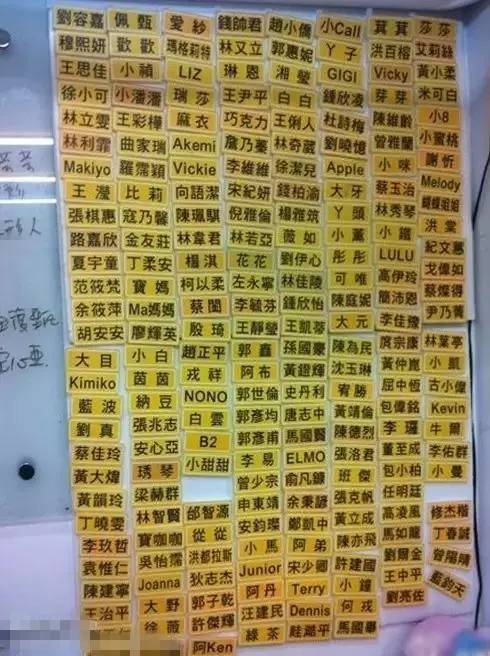 劉容嘉 佩甄 愛紗 錢帥君 趙小僑 小Call 萁萁 莎莎
穆熙妍 歡歡 瑪格莉特 林又立 郭惠妮 丫子 洪百榕 艾莉絲
王思佳 小禎 LIZ 琳恩 湘瑩 GIGI Vicky 黃小柔
徐小可 小潘潘 瑞莎 王尹平 白白 鍾欣凌 芽芽 米可白
林立雯 王彩樺 麻衣 巧克力 王俐人 杜詩梅 陳維齡 小8
林利霏 曲家瑞 Akemi 詹乃蓁 林奇葳 劉曉憶 曾雅蘭 小蜜桃
Makiyo 羅霈穎 Vickie 李維維 徐潔兒 Apple 小咪 謝忻
王瀅 比莉 向語潔 宋紀妍 錢柏渝 大牙 蔡玉治 Melody
張棋惠 寇乃馨 陳珮騏 倪雅倫 楊雅筑 丫頭 林秀琴 蝴蝶姐姐
路嘉欣 金友莊 林韋君 林若亞 薇如 小薰 小鐵 洪棠
夏宇童 丁柔安 楊淇 花花 劉伊心 彤彤 LULU 紀文蕙
范筱梵 寶媽 柯以柔 左永寧 林佳陵 可唯 高伊玲 戈偉如
余筱萍 Ma媽媽 蔡閨 李毓芬 鍾欣怡 陳庭妮 簡沛恩 蔡燦得
胡安安 廖輝英 殷琦 王靜瑩 王凱蓉 大元 李佳豫 尹乃菁
大目 小白 趙正平 郭鑫 孫國豪 陳為民 庹宗康 林葉亭
Kimiko 茵茵 戎祥 阿布 黃鐙輝 沈玉琳 黃仲崑 小凱
藍波 納豆 NONO 郭世倫 史丹利 宥勝 屈中恆 古小偉
劉真 張兆志 白雲 郭彥均 唐志中 黃靖倫 包偉銘 Kevin
蔡佳玲 安心亞 B2 郭彥甫 馬國賢 陳德烈 李㼈 牛爾
黃大煒 琇琴 小甜甜 李易 ELMO 張洛君 董至成 李佑群
黃韻玲 梁赫群 曾少宗 俞凡鏞 班傑 包小柏 小曼
丁曉雯 林智賢 邰智源 申東靖 余秉諺 張克帆 任明廷
李玖哲 寶咖咖 從從 安鈞璨 鄭凱中 黃立成 高凌風 修杰楷
袁惟仁 吳怡霈 洪都拉斯 小馬 阿弟 陳亦飛 馬如龍 丁春誠
陳建寧 Joanna 狄志杰 Junior 宋少卿 許建國 劉爾金 曾陽晴
王治平 大野 郭子乾 阿丹 Terry 小鐘 王中平 藍鈞天
徐薇 許傑輝 汪建民 Dennis 何戎 劉亮佐
阿Ken 綠茶 眭澔平 馬國畢